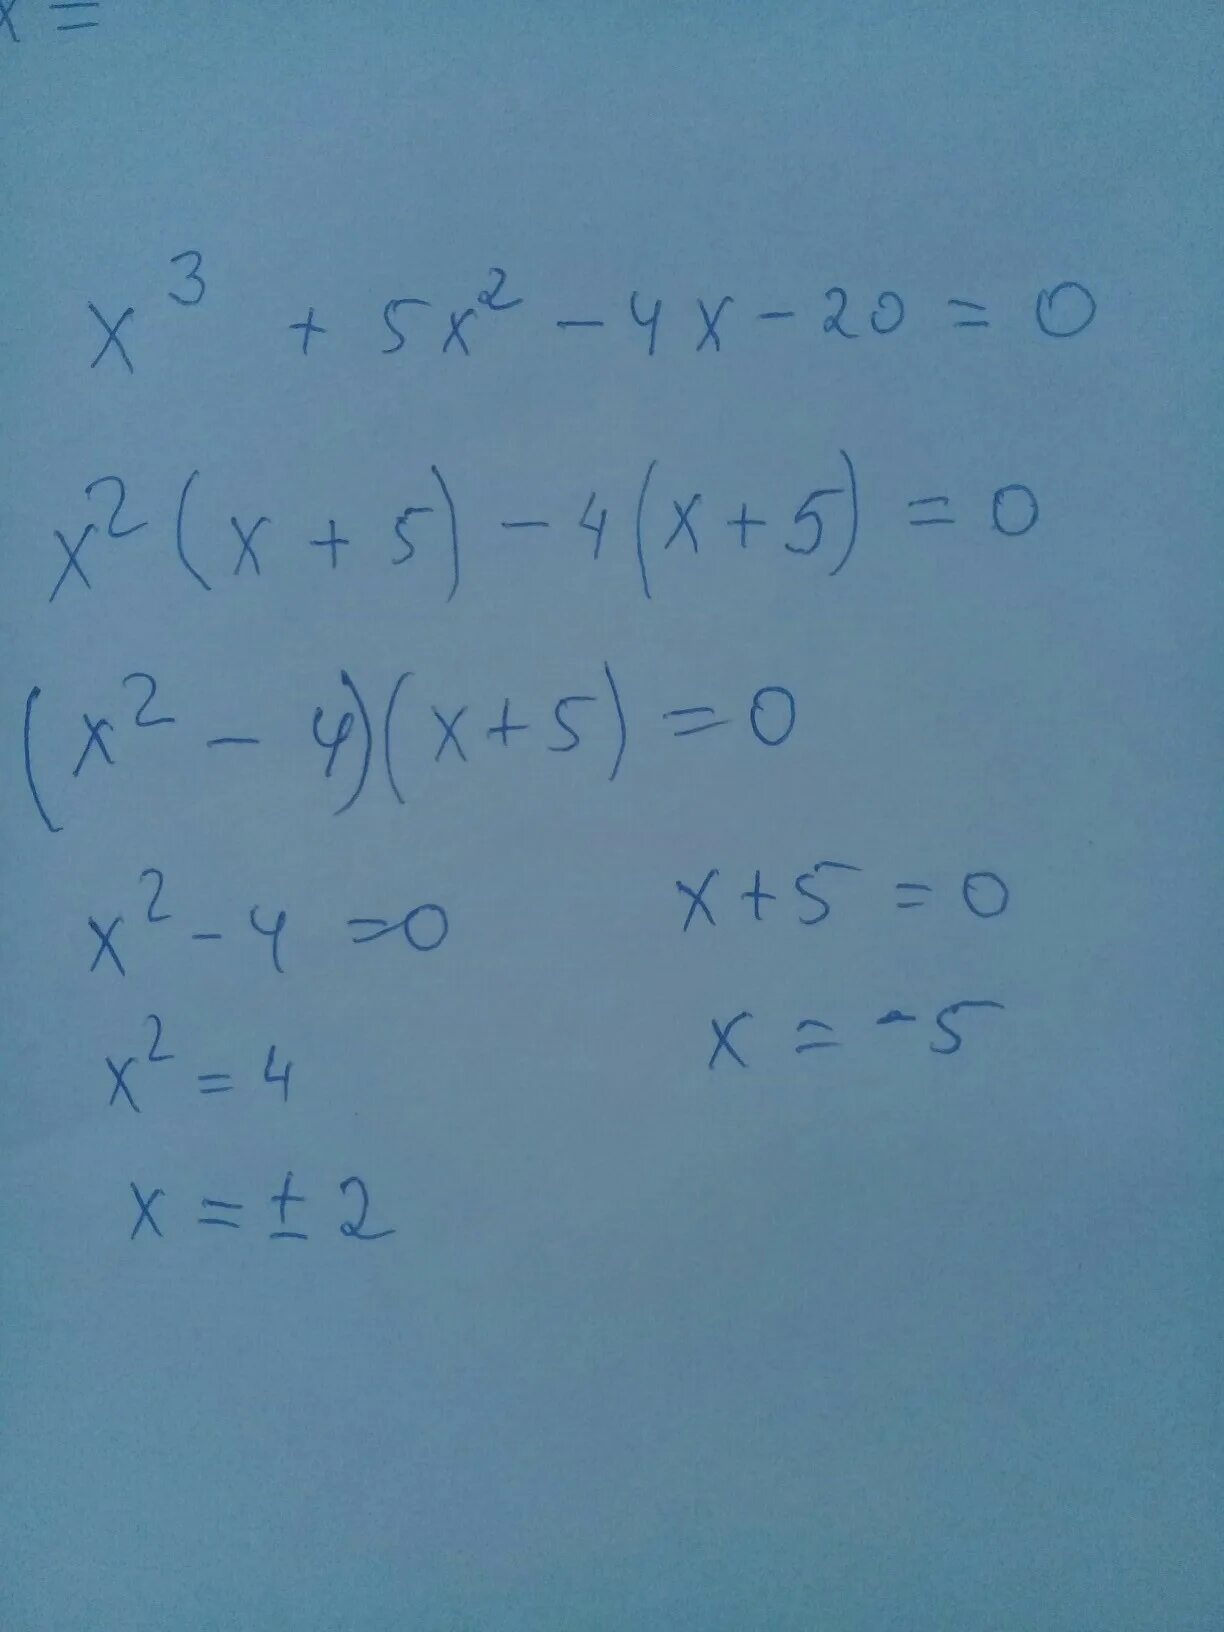 x =
x³ + 5x² - 4x - 20 = 0
x² (x + 5) - 4 (x + 5) = 0
(x² - 4) (x + 5) = 0
x² - 4 = 0 x + 5 = 0
x² = 4 x = -5
x = ± 2